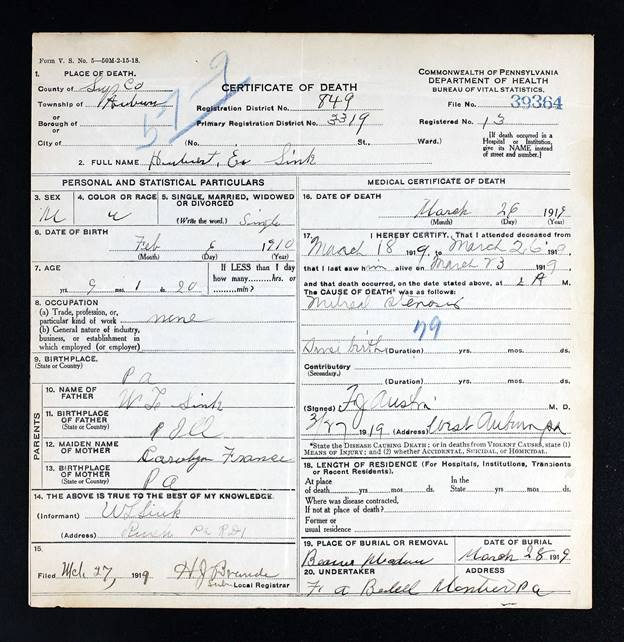 Form V. S. No. 5—50M-2-15-18.
1. PLACE OF DEATH.
County of Sus Co
Township of Auburn
or
Borough of
or
City of
57-2
CERTIFICATE OF DEATH
Registration District No. 849
Primary Registration District No. 3319
(No. St., Ward.)
COMMONWEALTH OF PENNSYLVANIA
DEPARTMENT OF HEALTH
BUREAU OF VITAL STATISTICS.
File No. 39364
Registered No. 13
[If death occurred in a
Hospital or Institution,
give its NAME instead
of street and number.]
2. FULL NAME Sink
PERSONAL AND STATISTICAL PARTICULARS
3. SEX
M
4. COLOR OR RACE
W
5. SINGLE, MARRIED, WIDOWED
OR DIVORCED
(Write the word.) Single
6. DATE OF BIRTH
Feb 1910
(Month) (Day) (Year)
7. AGE
9 yrs. 1 mos. 20 ds.
If LESS than 1 day
how many hrs. or
min.?
8. OCCUPATION
(a) Trade, profession, or
particular kind of work none
(b) General nature of industry,
business, or establishment in
which employed (or employer)
9. BIRTHPLACE
(State or Country)
Pa
PARENTS
10. NAME OF
FATHER
Sink
11. BIRTHPLACE
OF FATHER
(State or Country)
12. MAIDEN NAME
OF MOTHER
Carolyn France
13. BIRTHPLACE
OF MOTHER
(State or Country)
Pa
14. THE ABOVE IS TRUE TO THE BEST OF MY KNOWLEDGE.
(Informant) Sink
(Address) Rush Pa RD1
15.
Filed Mch 27, 1919 H J Local Registrar
MEDICAL CERTIFICATE OF DEATH
16. DATE OF DEATH
March 26 1919
(Month) (Day) (Year)
17. I HEREBY CERTIFY, That I attended deceased from
March 18 1919, to March 26 191
that I last saw him alive on March 23 1919
and that death occurred, on the date stated above, at M.
The CAUSE OF DEATH* was as follows:
Mitral stenosis
79
Since birth (Duration) yrs. mos. ds.
Contributory
(Secondary.)
(Duration) yrs. mos. ds.
(Signed) M. D.
3/27 1919 (Address) West Auburn Pa
*State the DISEASE CAUSING DEATH; or in deaths from VIOLENT CAUSES, state (1)
MEANS OF INJURY; and (2) whether ACCIDENTAL, SUICIDAL, or HOMICIDAL.
18. LENGTH OF RESIDENCE (For Hospitals, Institutions, Transients
or Recent Residents).
At place In the
of death yrs. mos. ds. State yrs. mos. ds.
Where was disease contracted,
if not at place of death?
Former or
usual residence
19. PLACE OF BURIAL OR REMOVAL
DATE OF BURIAL
March 28 1919
20. UNDERTAKER
ADDRESS